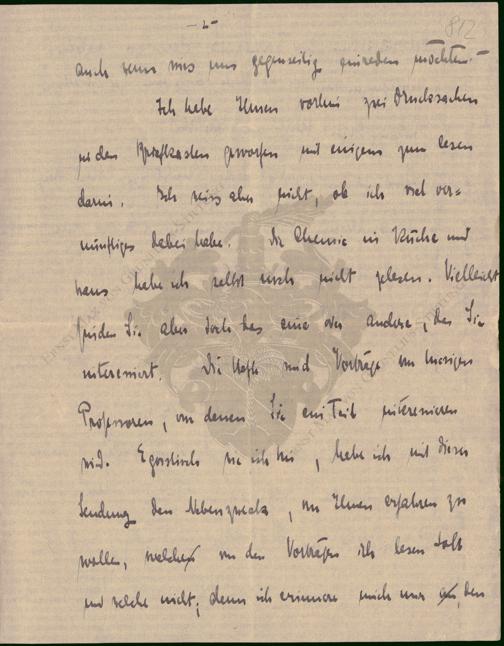 - 2 -
812
auch wenn wir's uns gegenseitig einreden möchten. -
Ich habe Ihnen vorhin zwei Drucksachen
in den Briefkasten geworfen mit einigem zum lesen
darin. Ich weiss aber nicht, ob ich viel ver=
nünftiges dabei habe. Die Chemie in Küche und
haus habe ich selbst noch nicht gelesen. Vielleicht
finden Sie aber doch das eine oder andere, das Sie
interessiert. Die Hefte sind Vorträge von hiesigen
Professoren, von denen Sie ein Teil interessieren
wird. Egoistisch wie ich bin, habe ich mit dieser
Sendung den Nebenzweck, von Ihnen erfahren zu
wollen, welchen von den Vorträgen ich lesen soll
und welche nicht; denn ich erinnere mich nur an den